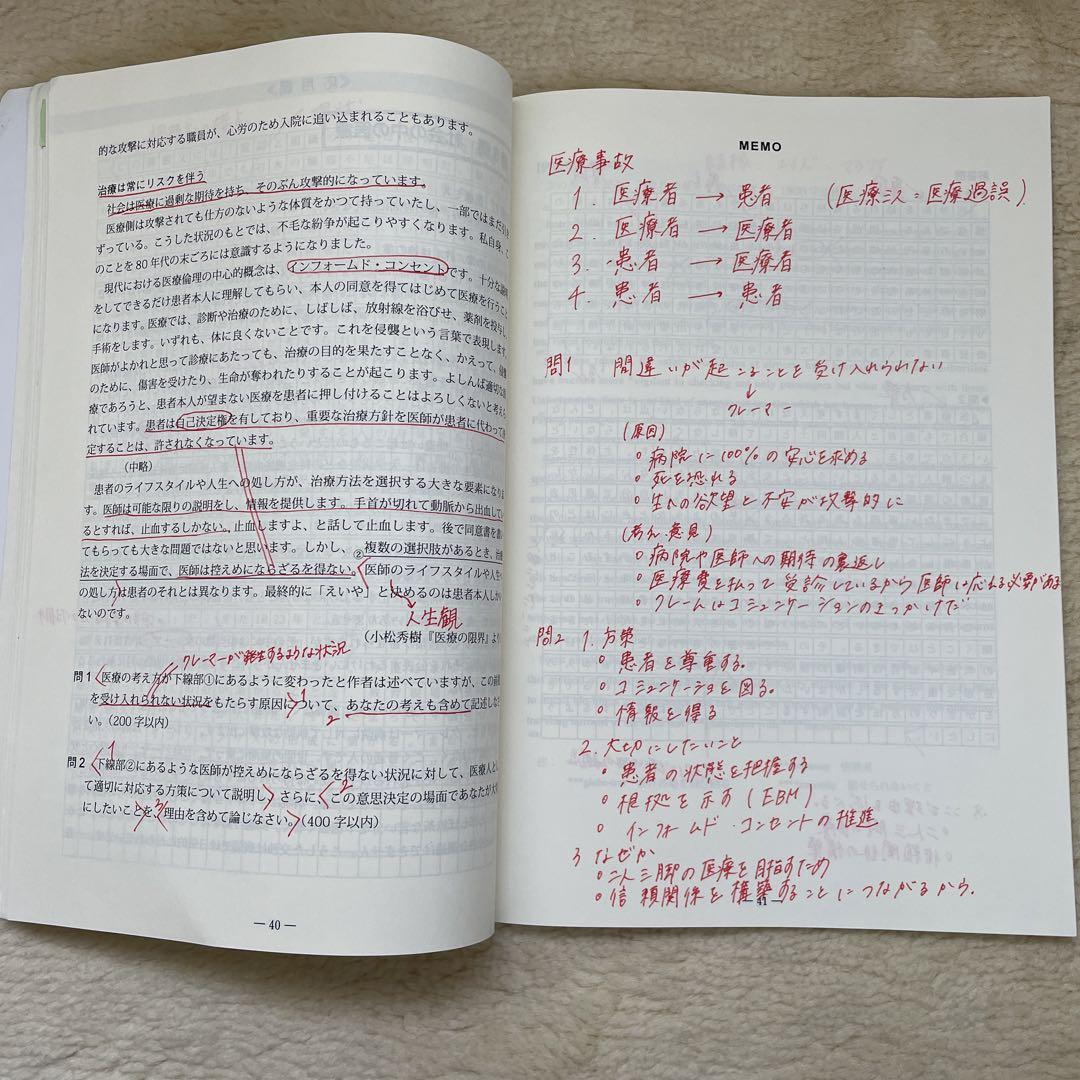 的な攻撃に対応する職員が、心労のため入院に追い込まれることもあります。
治療は常にリスクを伴う
社会は医療に過剰な期待を持ち、そのぶん攻撃的になっています。
医療側は攻撃されても仕方のないような体質をかつて持っていたし、一部ではまだ
ずっている。こうした状況のもとでは、不毛な紛争が起こりやすくなります。私自身、こ
のことを80年代の末ごろには意識するようになりました。
現代における医療倫理の中心的概念は、インフォームド・コンセントです。十分な
をしてできるだけ患者本人に理解してもらい、本人の同意を得てはじめて医療を行うこと
になります。医療では、診断や治療のために、しばしば、放射線を浴びせ、薬剤を投与し
手術をします。いずれも、体に良くないことです。これを侵襲という言葉で表現します。
医師がよかれと思って診療にあたっても、治療の目的を果たすことなく、かえって、
のために、傷害を受けたり、生命が奪われたりすることが起こります。よしんば適切な
療であろうと、患者本人が望まない医療を患者に押し付けることはよろしくないと考え
れています。患者は自己決定権を有しており、重要な治療方針を医師が患者に代わって
定することは、許されなくなっています。
(中略)
患者のライフスタイルや人生への処し方が、治療方法を選択する大きな要素になり
す。医師は可能な限りの説明をし、情報を提供します。手首が切れて動脈から出血してい
るとすれば、止血するしかない。止血しますよ、と話して止血します。後で同意書を
てもらっても大きな問題ではないと思います。しかし、②複数の選択肢があるとき、治
法を決定する場面で、医師は控えめにならざるを得ない。医師のライフスタイルや人生
の処し方は患者のそれとは異なります。最終的に「えいや」と決めるのは患者本人しか
ないのです。
人生観
(小松秀樹『医療の限界』より
クレーマーが発生するような状況
問1 医療の考え方が下線部①にあるように変わったと作者は述べていますが、この
を受け入れられない状況をもたらす原因について、あなたの考えも含めて記述しな
い。(200字以内)
1
2
問2 下線部②にあるような医師が控えめにならざるを得ない状況に対して、医療人と
て適切に対応する方策について説明し、さらに、この意思決定の場面であなたが大
にしたいことを、理由を含めて論じなさい。(400字以内)
1
2
3
― 40 ―
MEMO
医療事故
1. 医療者 → 患者 (医療ミス=医療過誤)
2. 医療者 → 医療者
3. 患者 → 医療者
4. 患者 → 患者
問1 間違いが起こることを受け入れられない
↓
クレーマー
(原因)
○病院に100%の安心を求める
○死を恐れる
○生への欲望と不安が攻撃的に
(考え・意見)
○病院や医師への期待の裏返し
○医療費を払って受診しているから医師は応える必要がある
○クレームはコミュニケーションのきっかけだ!
問2 1.方策
○患者を尊重する。
○コミュニケーションを図る。
○情報を得る
2.大切にしたいこと
○患者の状態を把握する
○根拠を示す(EBM)
○インフォームド・コンセントの推進
3 なぜか
○二人三脚の医療を目指すため
○信頼関係を構築することにつながるから.
― 41 ―